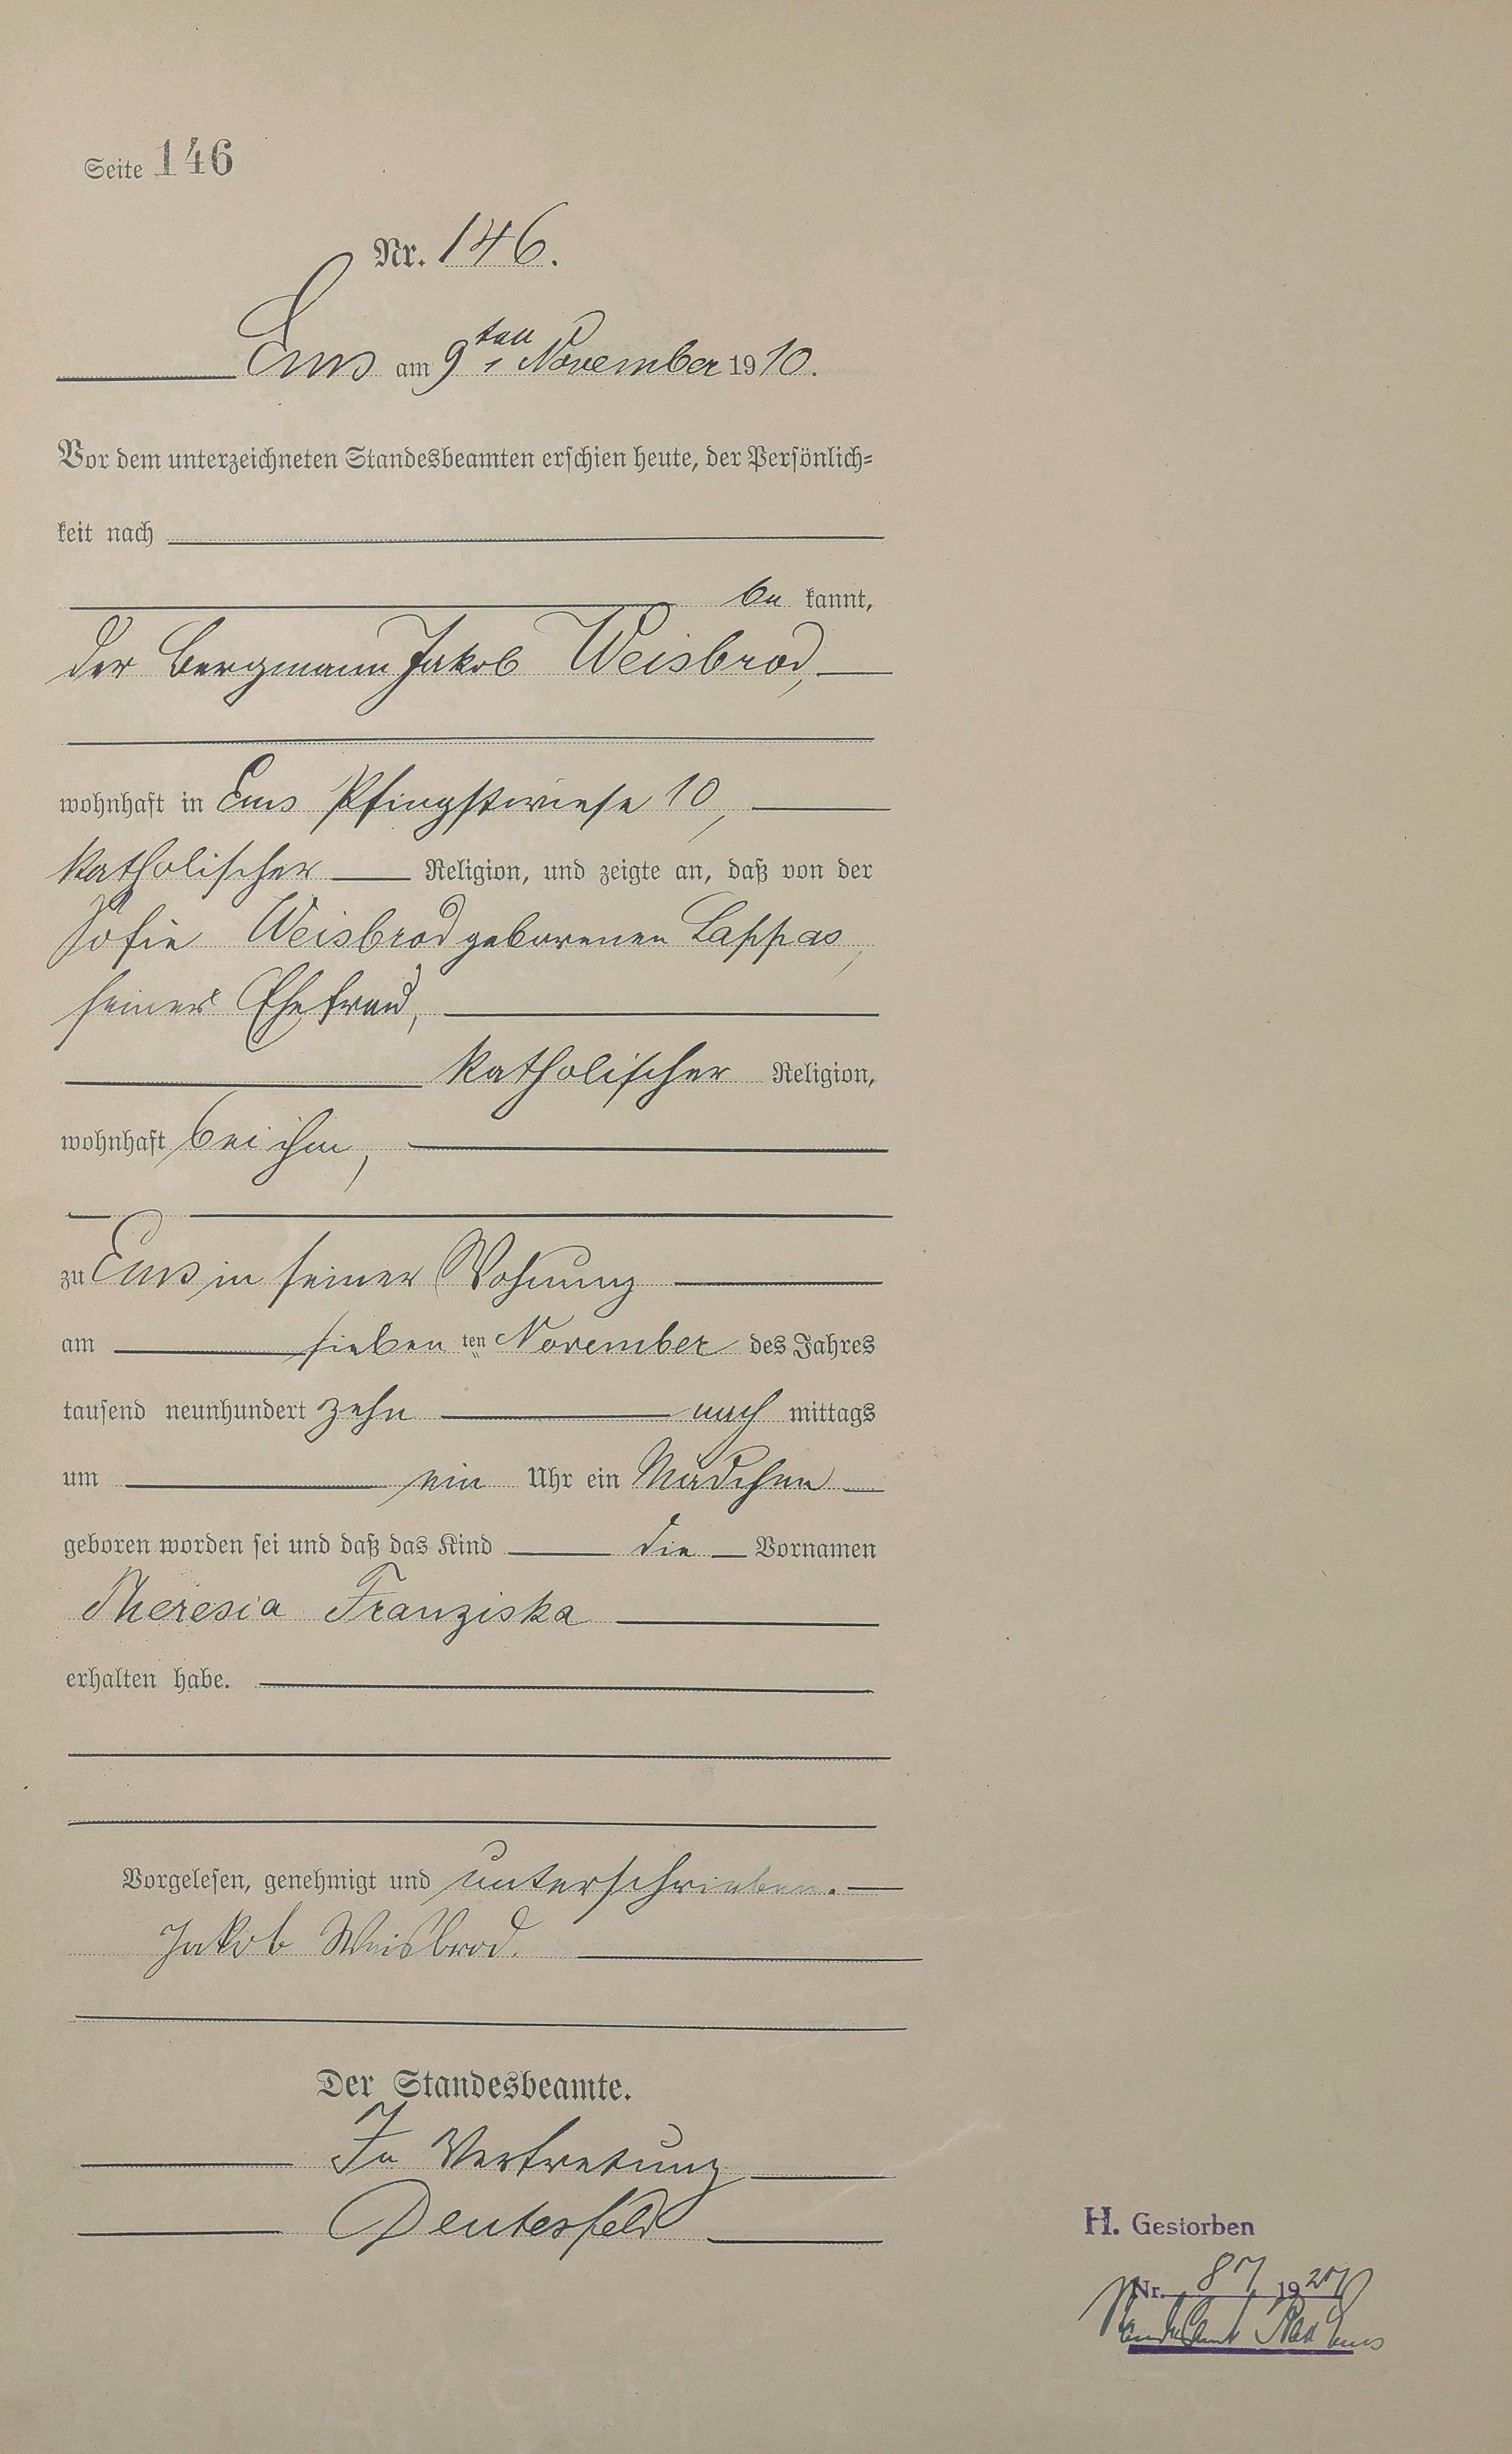 Seite 146
Nr. 146.
Ems am 9ten November 1910.
Vor dem unterzeichneten Standesbeamten erschien heute, der Persönlich-
keit nach
be kannt,
der Bergmann Jakob Weisbrod,
wohnhaft in Ems Pfingstwiese 10,
katholischer Religion, und zeigte an, daß von der
Sofie Weisbrod geborenen Lappas,
seiner Ehefrau,
katholischer Religion,
wohnhaft bei ihm,
zu Ems in seiner Wohnung
am sieben ten November des Jahres
tausend neunhundert zehn nach mittags
um ein Uhr ein Mädchen
geboren worden sei und daß das Kind die Vornamen
Theresia Franziska
erhalten habe.
Vorgelesen, genehmigt und unterschrieben.
Jakob Weisbrod.
Der Standesbeamte.
In Vertretung
Deutesfeld
H. Gestorben
Nr. 87 1927
Standesamt Bad Ems